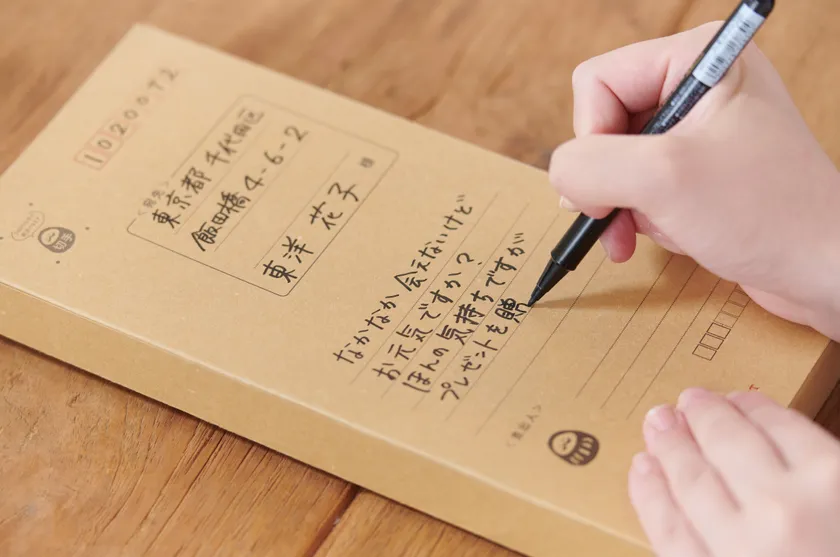 1020072
<宛先>
東京都千代田区
飯田橋4-6-2
東洋 花子 様
切手
なかなか会えないけど
お元気ですか?
ほんの気持ちですが
プレゼントを贈
<差出人>